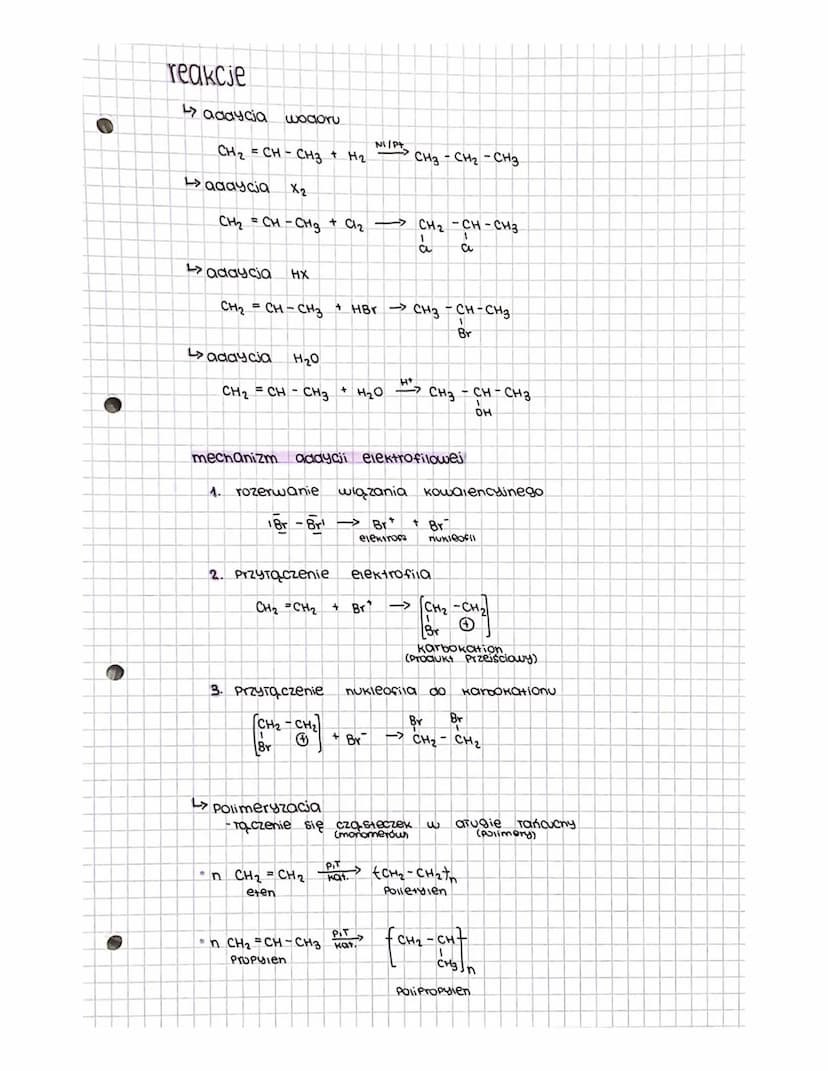 reakcje
↳ addycja wodoru
CH₂ = CH - CH₃ + H₂ —Ni/Pt→ CH₃ - CH₂ - CH₃
↳ addycja X₂
CH₂ = CH - CH₃ + Cl₂ ⟶ CH₂ - CH - CH₃
Cl Cl
↳ addycja HX
CH₂ = CH - CH₃ + HBr → CH₃ - CH - CH₃
Br
↳ addycja H₂O
CH₂ = CH - CH₃ + H₂O —H⁺→ CH₃ - CH - CH₃
OH
mechanizm addycji elektrofilowej
1. rozerwanie wiązania kowalencyjnego
|Br - Br| ⟶ Br⁺ + Br⁻
elektrofil nukleofil
2. przyłączenie elektrofila
CH₂ = CH₂ + Br⁺ → [CH₂ - CH₂]
Br ⊕
karbokation
(produkt przejściowy)
3. przyłączenie nukleofila do karbokationu
Br Br
[CH₂ - CH₂] + Br⁻ → CH₂ - CH₂
Br ⊕
↳ polimeryzacja
- łączenie się cząsteczek w długie łańcuchy
(monomerów) (polimery)
• n CH₂ = CH₂ —p,T kat.→ {CH₂ - CH₂}n
eten polietylen
• n CH₂ = CH - CH₃ —p,T kat.→ [CH₂ - CH]n
CH₃
propylen
polipropylen